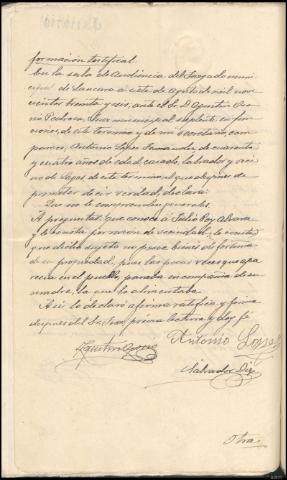 formación testifical
En la sala de Audiencia del Juzgado muni-
cipal de Lancara a siete de Agosto de mil nove-
cientos treinta y seis, ante el Sr. D. Agustin
Juez municipal suplente en fun-
ciones, de este termino y de mi Secretario, com-
parece, Antonio López Fernandez, de cuarenta
y cuatro años de edad, casado, labrador y veci-
no de Lagos de este termino, el que despues de
prometer decir verdad, declara:
Que no le comprenden generales.
A preguntas: Que conoce a Julio Poy
y le consta por razon de vecindad, le consta
que dicho sujeto no posee bienes de fortuna
de su propiedad, pues las pocas veces que apa-
recia en el pueblo, paraba en compañia de su
madre, la que lo alimentaba.
Asi lo declaró afirma ratifica y firma
despues del Sr. Juez, previa lectura y doy fé
Agustin
Antonio Lopez
Salvador
Otra